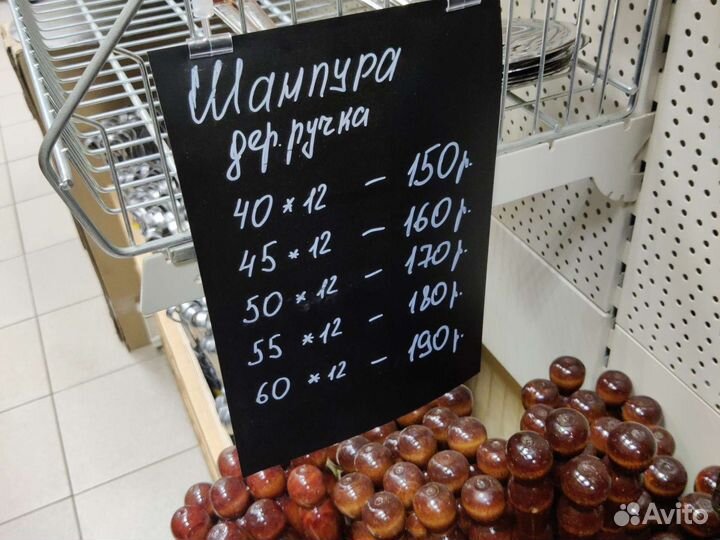 Шампура
дер. ручка
40 * 12 – 150р.
45 * 12 – 160р.
50 * 12 – 170р.
55 * 12 – 180р.
60 * 12 – 190р.
Avito